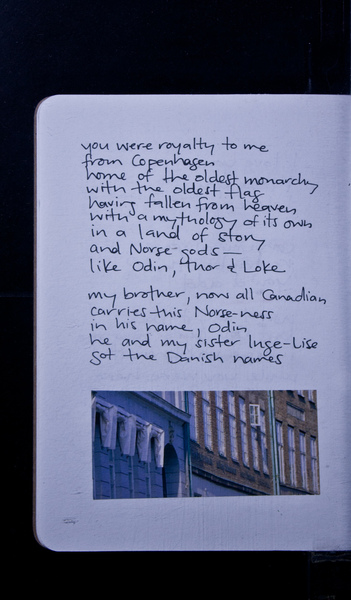 you were royalty to me
from Copenhagen
home of the oldest monarchy
with the oldest flag
having fallen from heaven
with a mythology of its own
in a land of story
and Norse gods—
like Odin, Thor & Loke
my brother, now all Canadian
carries this Norse-ness
in his name, Odin
he and my sister Inge-Lise
got the Danish names